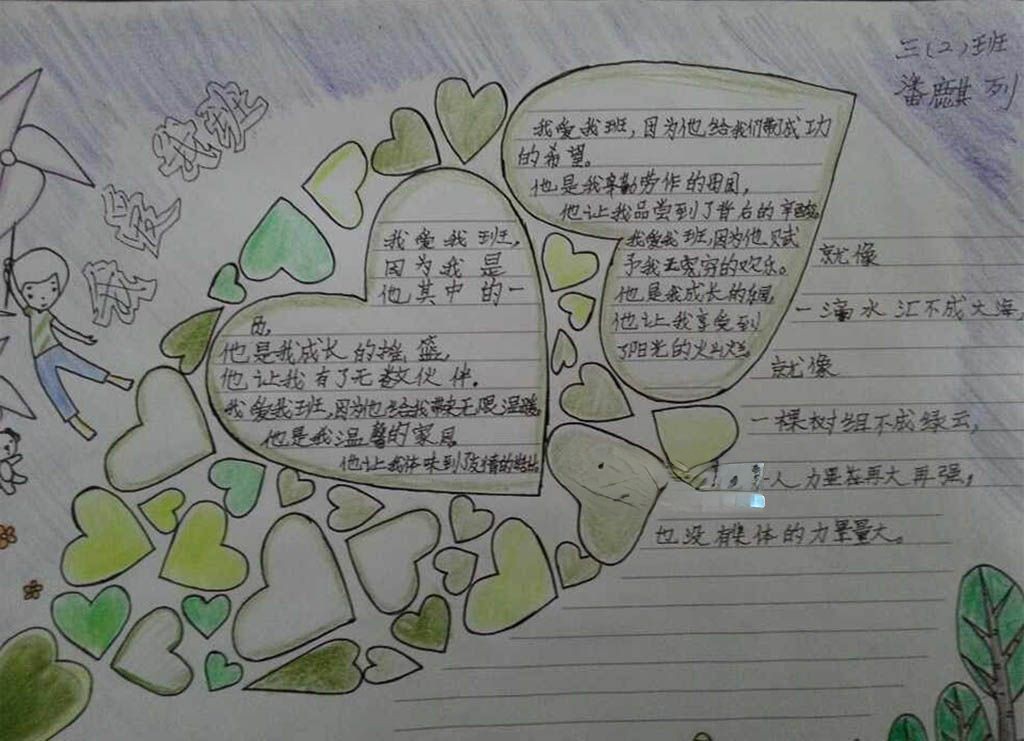 三(2)班
潘麒列
我爱我班
我爱我班,
因为我是
他其中的一
员,
他是我成长的摇篮,
他让我有了无数伙伴.
我爱我班,因为他给我带来无限温暖,
他是我温馨的家园
他让我体味到了友情的
我爱我班,因为他给我们带成功
的希望。
他是我辛勤劳作的田园,
他让我品尝到了背后的辛酸,
我爱我班,因为他赋
予我无穷的欢乐。
他是我成长的
他让我享受到
了阳光的火灿烂,
就像
一滴水汇不成大海,
就像
一棵树组不成绿云,
人力量在再大再强,
也没有集体的力量量大。